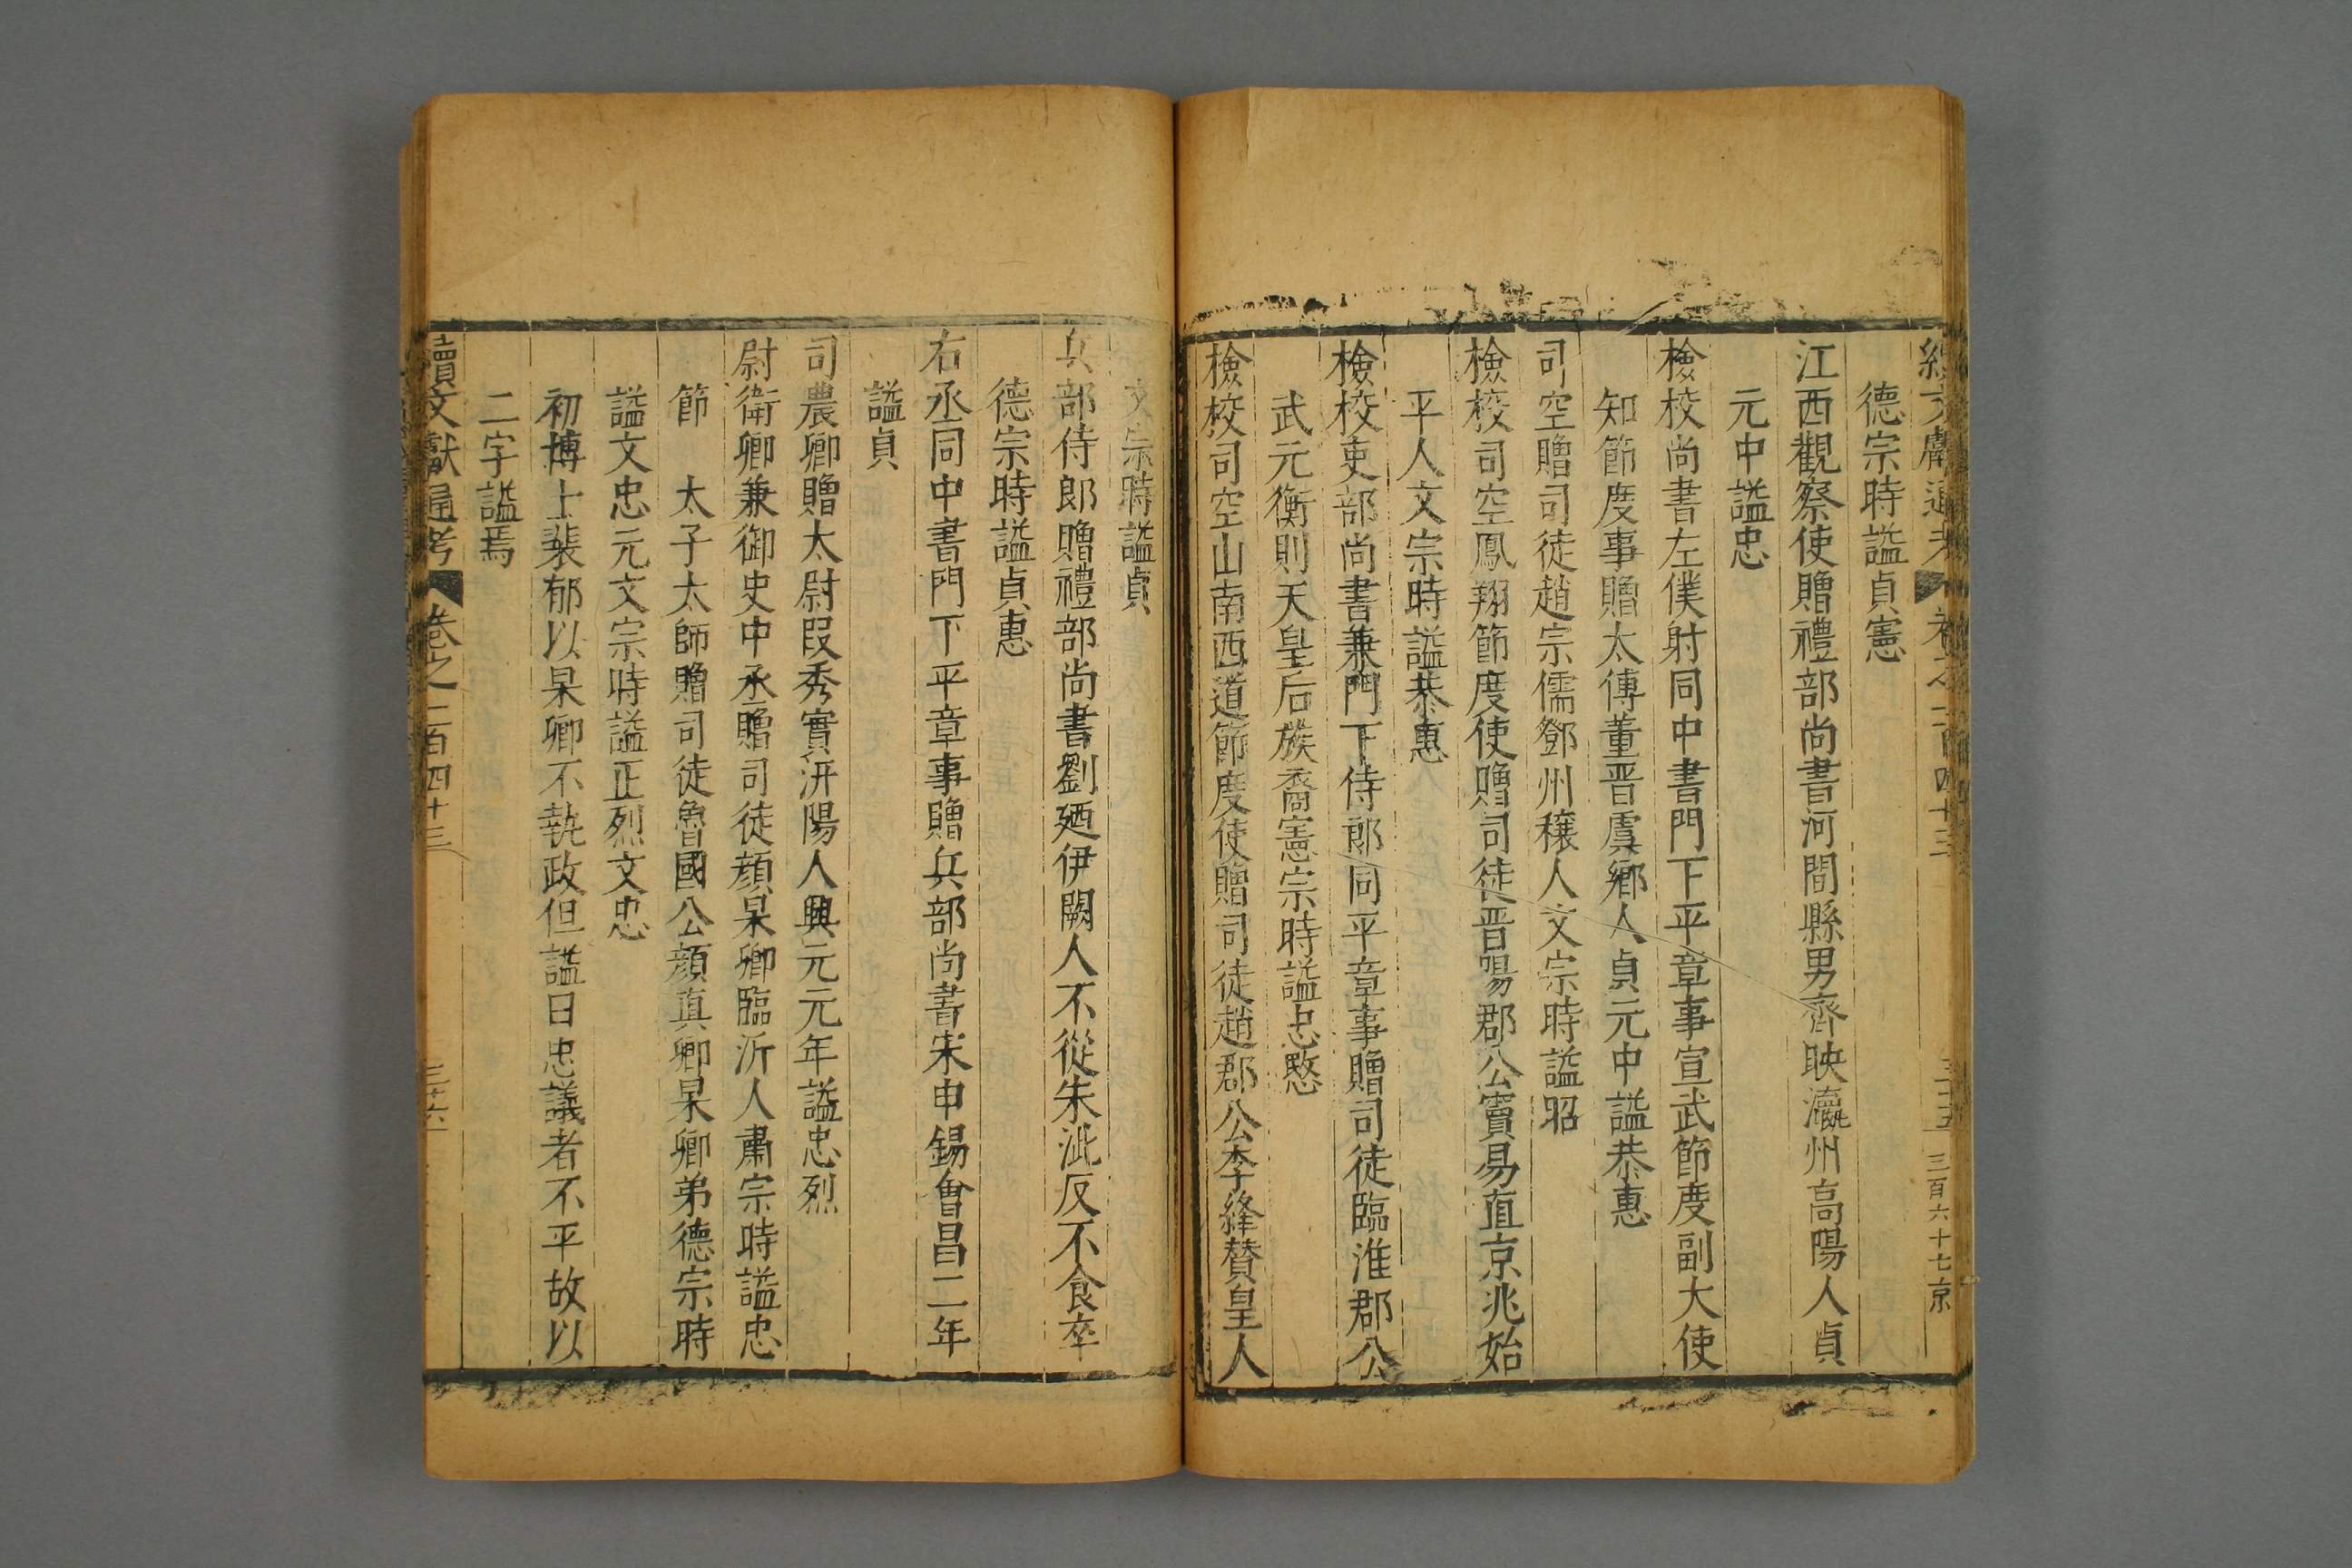 續文獻通考 卷之二百四十三 三十五 三百六十七京
德宗時謚貞憲
江西觀察使贈禮部尚書河間縣男齊映瀛州高陽人貞
元中謚忠
檢校尚書左僕射同中書門下平章事宣武節度副大使
知節度事贈太傅董晋虞鄉人貞元中謚恭惠
司空贈司徒趙宗儒鄧州穰人文宗時謚昭
檢校司空鳳翔節度使贈司徒晋陽郡公竇易直京兆始
平人文宗時謚恭惠
檢校吏部尚書兼門下侍郎同平章事贈司徒臨淮郡公
武元衡則天皇后族裔憲宗時謚忠愍
檢校司空山南西道節度使贈司徒趙郡公李絳賛皇人
文宗時謚貞
兵部侍郎贈禮部尚書劉廼伊闕人不從朱泚反不食卒
德宗時謚貞惠
右丞同中書門下平章事贈兵部尚書宋申錫會昌二年
謚貞
司農卿贈太尉段秀實汧陽人興元元年謚忠烈
尉衛卿兼御史中丞贈司徒顔杲卿臨沂人肅宗時謚忠
節　太子太師贈司徒魯國公顔真卿杲卿弟德宗時
謚文忠元文宗時謚正烈文忠
初博士裴郁以杲卿不執政但謚曰忠議者不平故以
二字謚焉
續文獻通考 卷之二百四十三 三十六